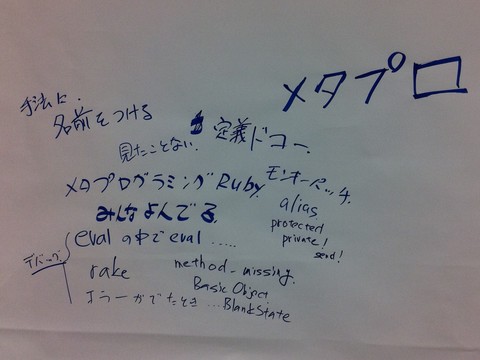 メタプロ
手法に.
名前をつける
見たことない.
定義ドコー.
メタプログラミングRuby.
みんなよんでる.
モンキーパッチ.
alias
protected
private!
send!
デバッグ
evalの中でeval .....
rake
エラーがでたとき...
method_missing.
Basic Object
BlankState